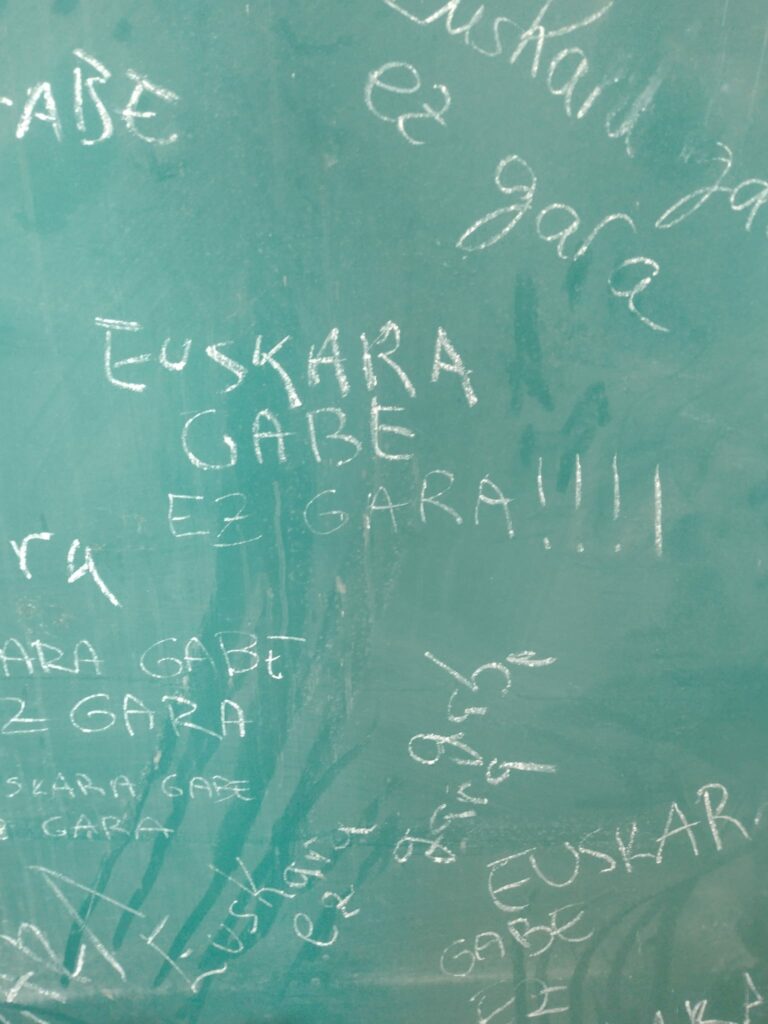 Euskara
GABE
ez
ga
gara
EUSKARA
GABE
EZ GARA!!!!
ra
ARA GABE
Z GARA
SKARA GABE
Z GARA
Euskara gabe
ez gara
EUSKARA
GABE
EZ